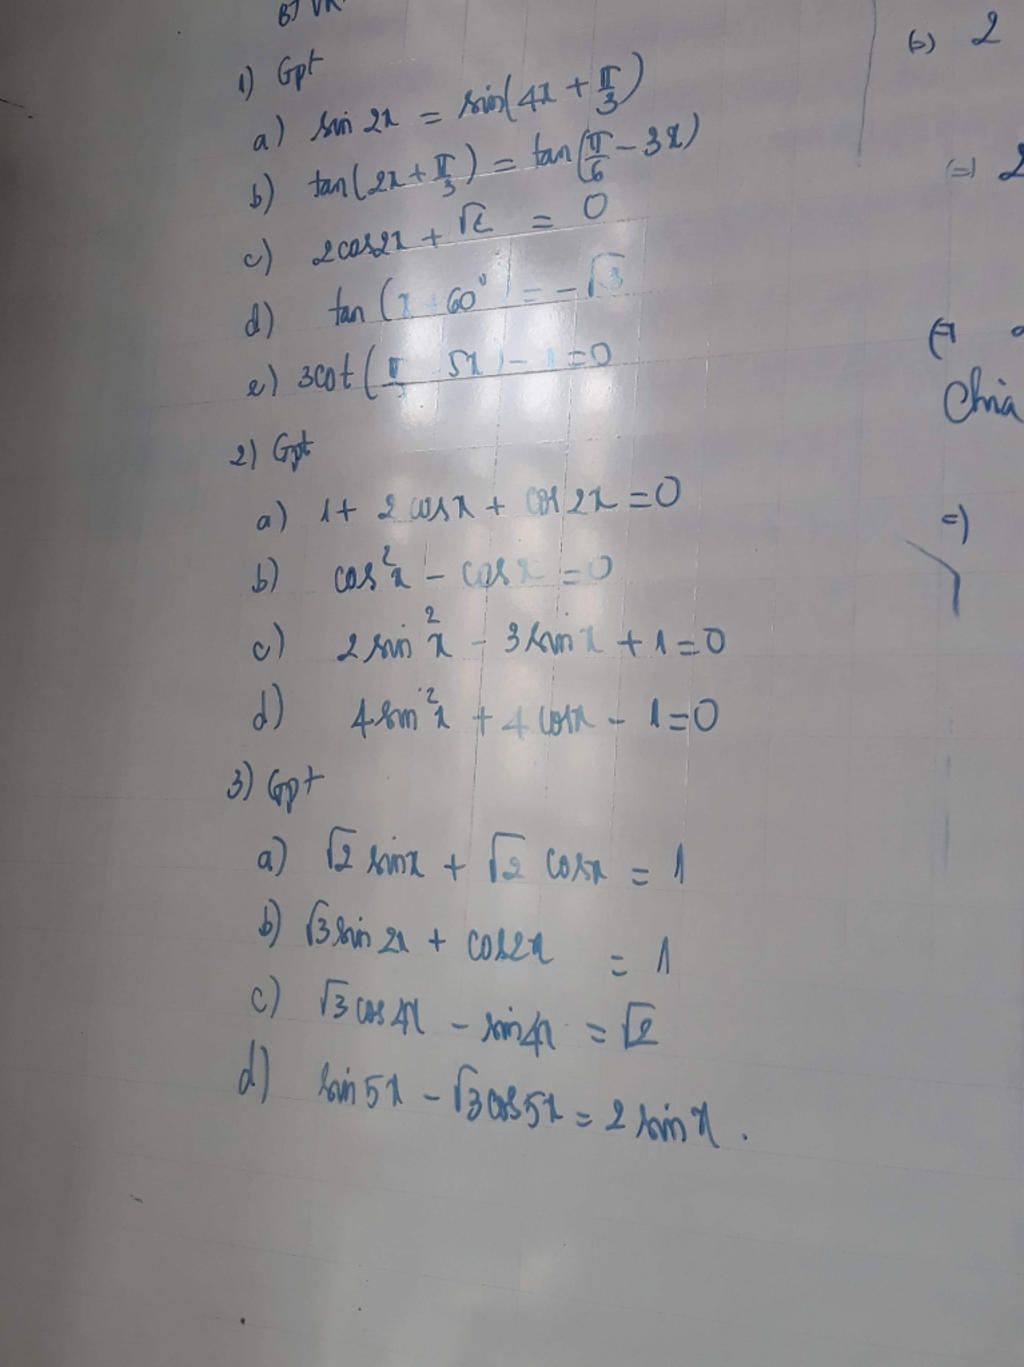 1) Gpt
a) sin 2x = sin(4x + π/3)
b) tan(2x + π/3) = tan(π/6 - 3x)
c) 2cos2x + √2 = 0
d) tan (x + 60°) = -√3
e) 3cot( 5x) - 1 = 0
2) Gpt
a) 1 + 2cosx + cos2x = 0
b) cos²x - cosx = 0
c) 2sin²x - 3sinx + 1 = 0
d) 4sin²x + 4cosx - 1 = 0
3) Gpt
a) √2 sinx + √2 cosx = 1
b) √3sin2x + cos2x = 1
c) √3cos4x - sin4x = √2
d) sin5x - √3cos5x = 2sinx.
(=) 2
(=) 2
(=)
Chia
=)